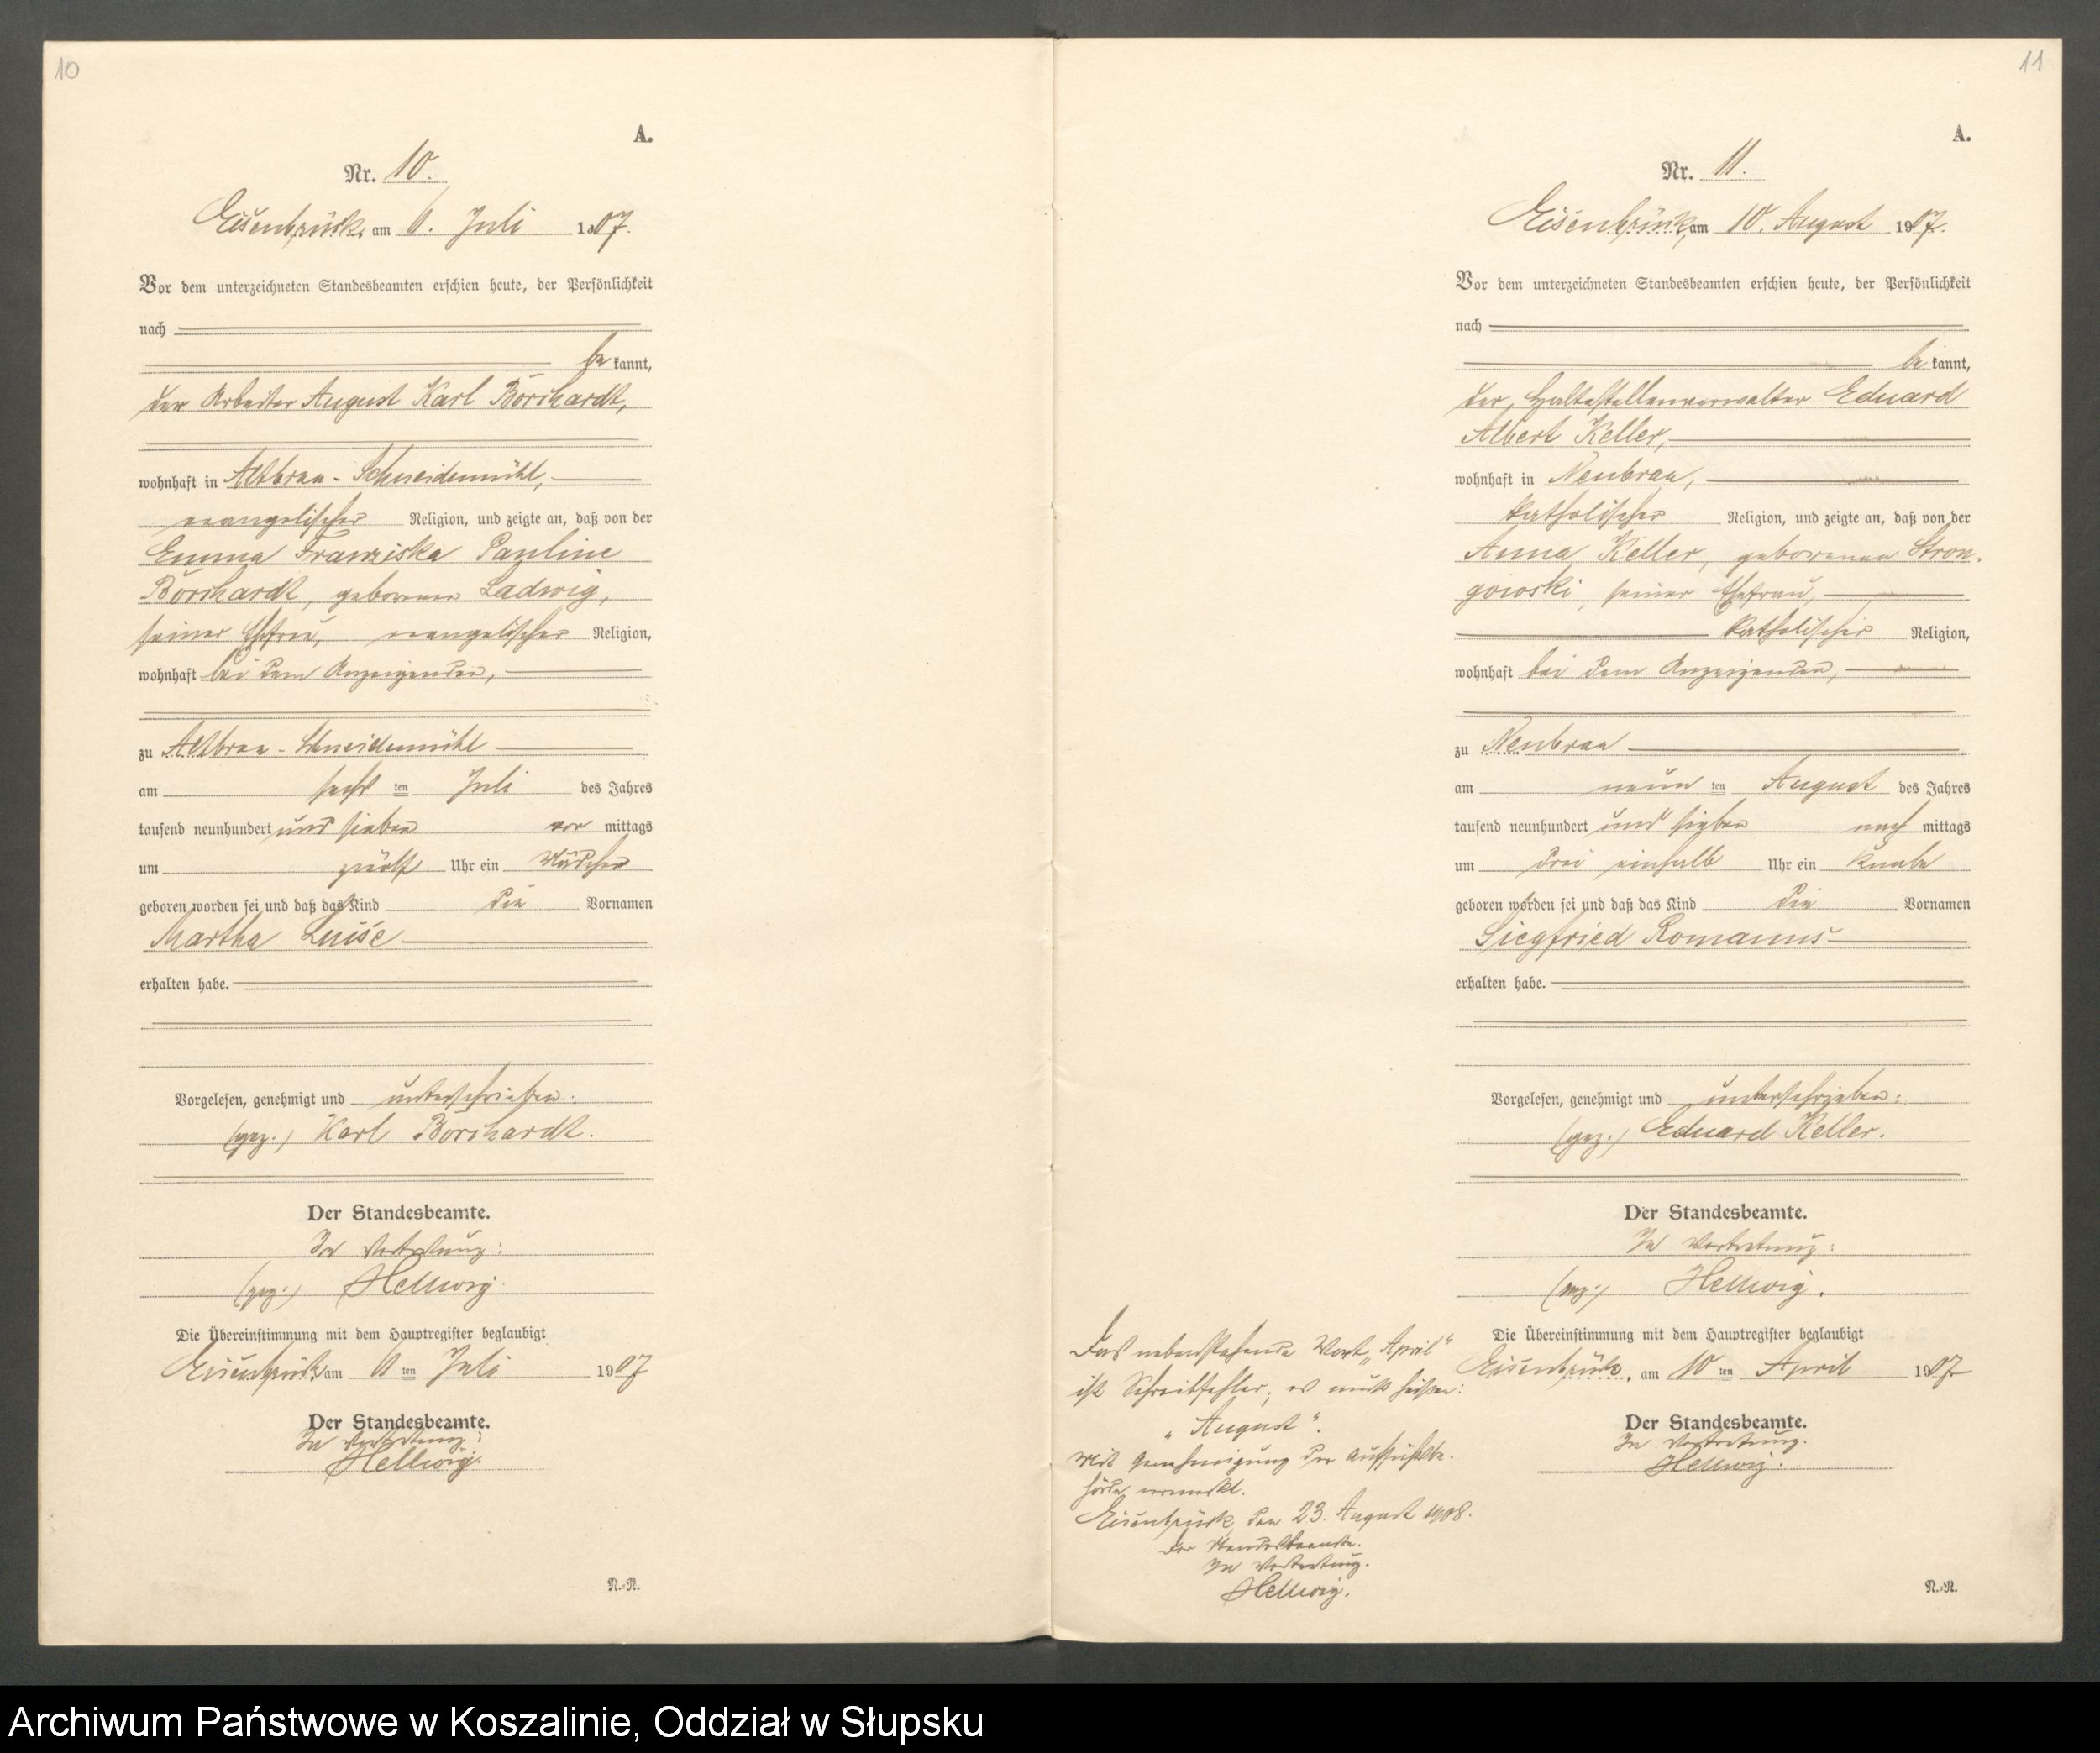 10
A.
Nr. 10.
Eisenbrück, am 6. Juli 1907.
Vor dem unterzeichneten Standesbeamten erschien heute, der Persönlichkeit
nach
be kannt,
der Arbeiter August Karl Borchardt,
wohnhaft in Altbraa-Schneidemühl,
evangelischer Religion, und zeigte an, daß von der
Emma Franziska Pauline
Borchardt, geborenen Ladwig,
seiner Ehefrau, evangelischer Religion,
wohnhaft bei dem Anzeigenden,
zu Altbraa-Schneidemühl
am sechs ten Juli des Jahres
tausend neunhundert und sieben vor mittags
um zwölf Uhr ein Mädchen
geboren worden sei und daß das Kind die Vornamen
Martha Luise
erhalten habe.
Vorgelesen, genehmigt und unterschrieben.
(gez.) Karl Borchardt.
Der Standesbeamte.
In Vertretung:
(gez.) Hellwig.
Die Übereinstimmung mit dem Hauptregister beglaubigt
Eisenbrück, am 6 ten Juli 1907
Der Standesbeamte.
In Vertretung:
Hellwig.
N.-R.
11
A.
Nr. 11.
Eisenbrück, am 10. August 1907.
Vor dem unterzeichneten Standesbeamten erschien heute, der Persönlichkeit
nach
be kannt,
der Haltestellenverwalter Eduard
Albert Keller,
wohnhaft in Neubraa,
katholischer Religion, und zeigte an, daß von der
Anna Keller, geborenen Stron-
gowski, seiner Ehefrau,
katholischer Religion,
wohnhaft bei dem Anzeigenden,
zu Neubraa
am neun ten August des Jahres
tausend neunhundert und sieben nach mittags
um drei einhalb Uhr ein Knabe
geboren worden sei und daß das Kind die Vornamen
Siegfried Romanus
erhalten habe.
Vorgelesen, genehmigt und unterschrieben:
(gez.) Eduard Keller.
Der Standesbeamte.
In Vertretung:
(gez.) Hellwig.
Die Übereinstimmung mit dem Hauptregister beglaubigt
Eisenbrück, am 10 ten April 1907
Der Standesbeamte.
In Vertretung.
Hellwig.
Das nebenstehende Wort „April“
ist Schreibfehler; es muß heißen:
„August“.
Mit Genehmigung der Aufsichtsbe-
hörde vermerkt.
Eisenbrück, den 23. August 1908.
Der Standesbeamte.
In Vertretung.
Hellwig.
N.-R.
Archiwum Państwowe w Koszalinie, Oddział w Słupsku